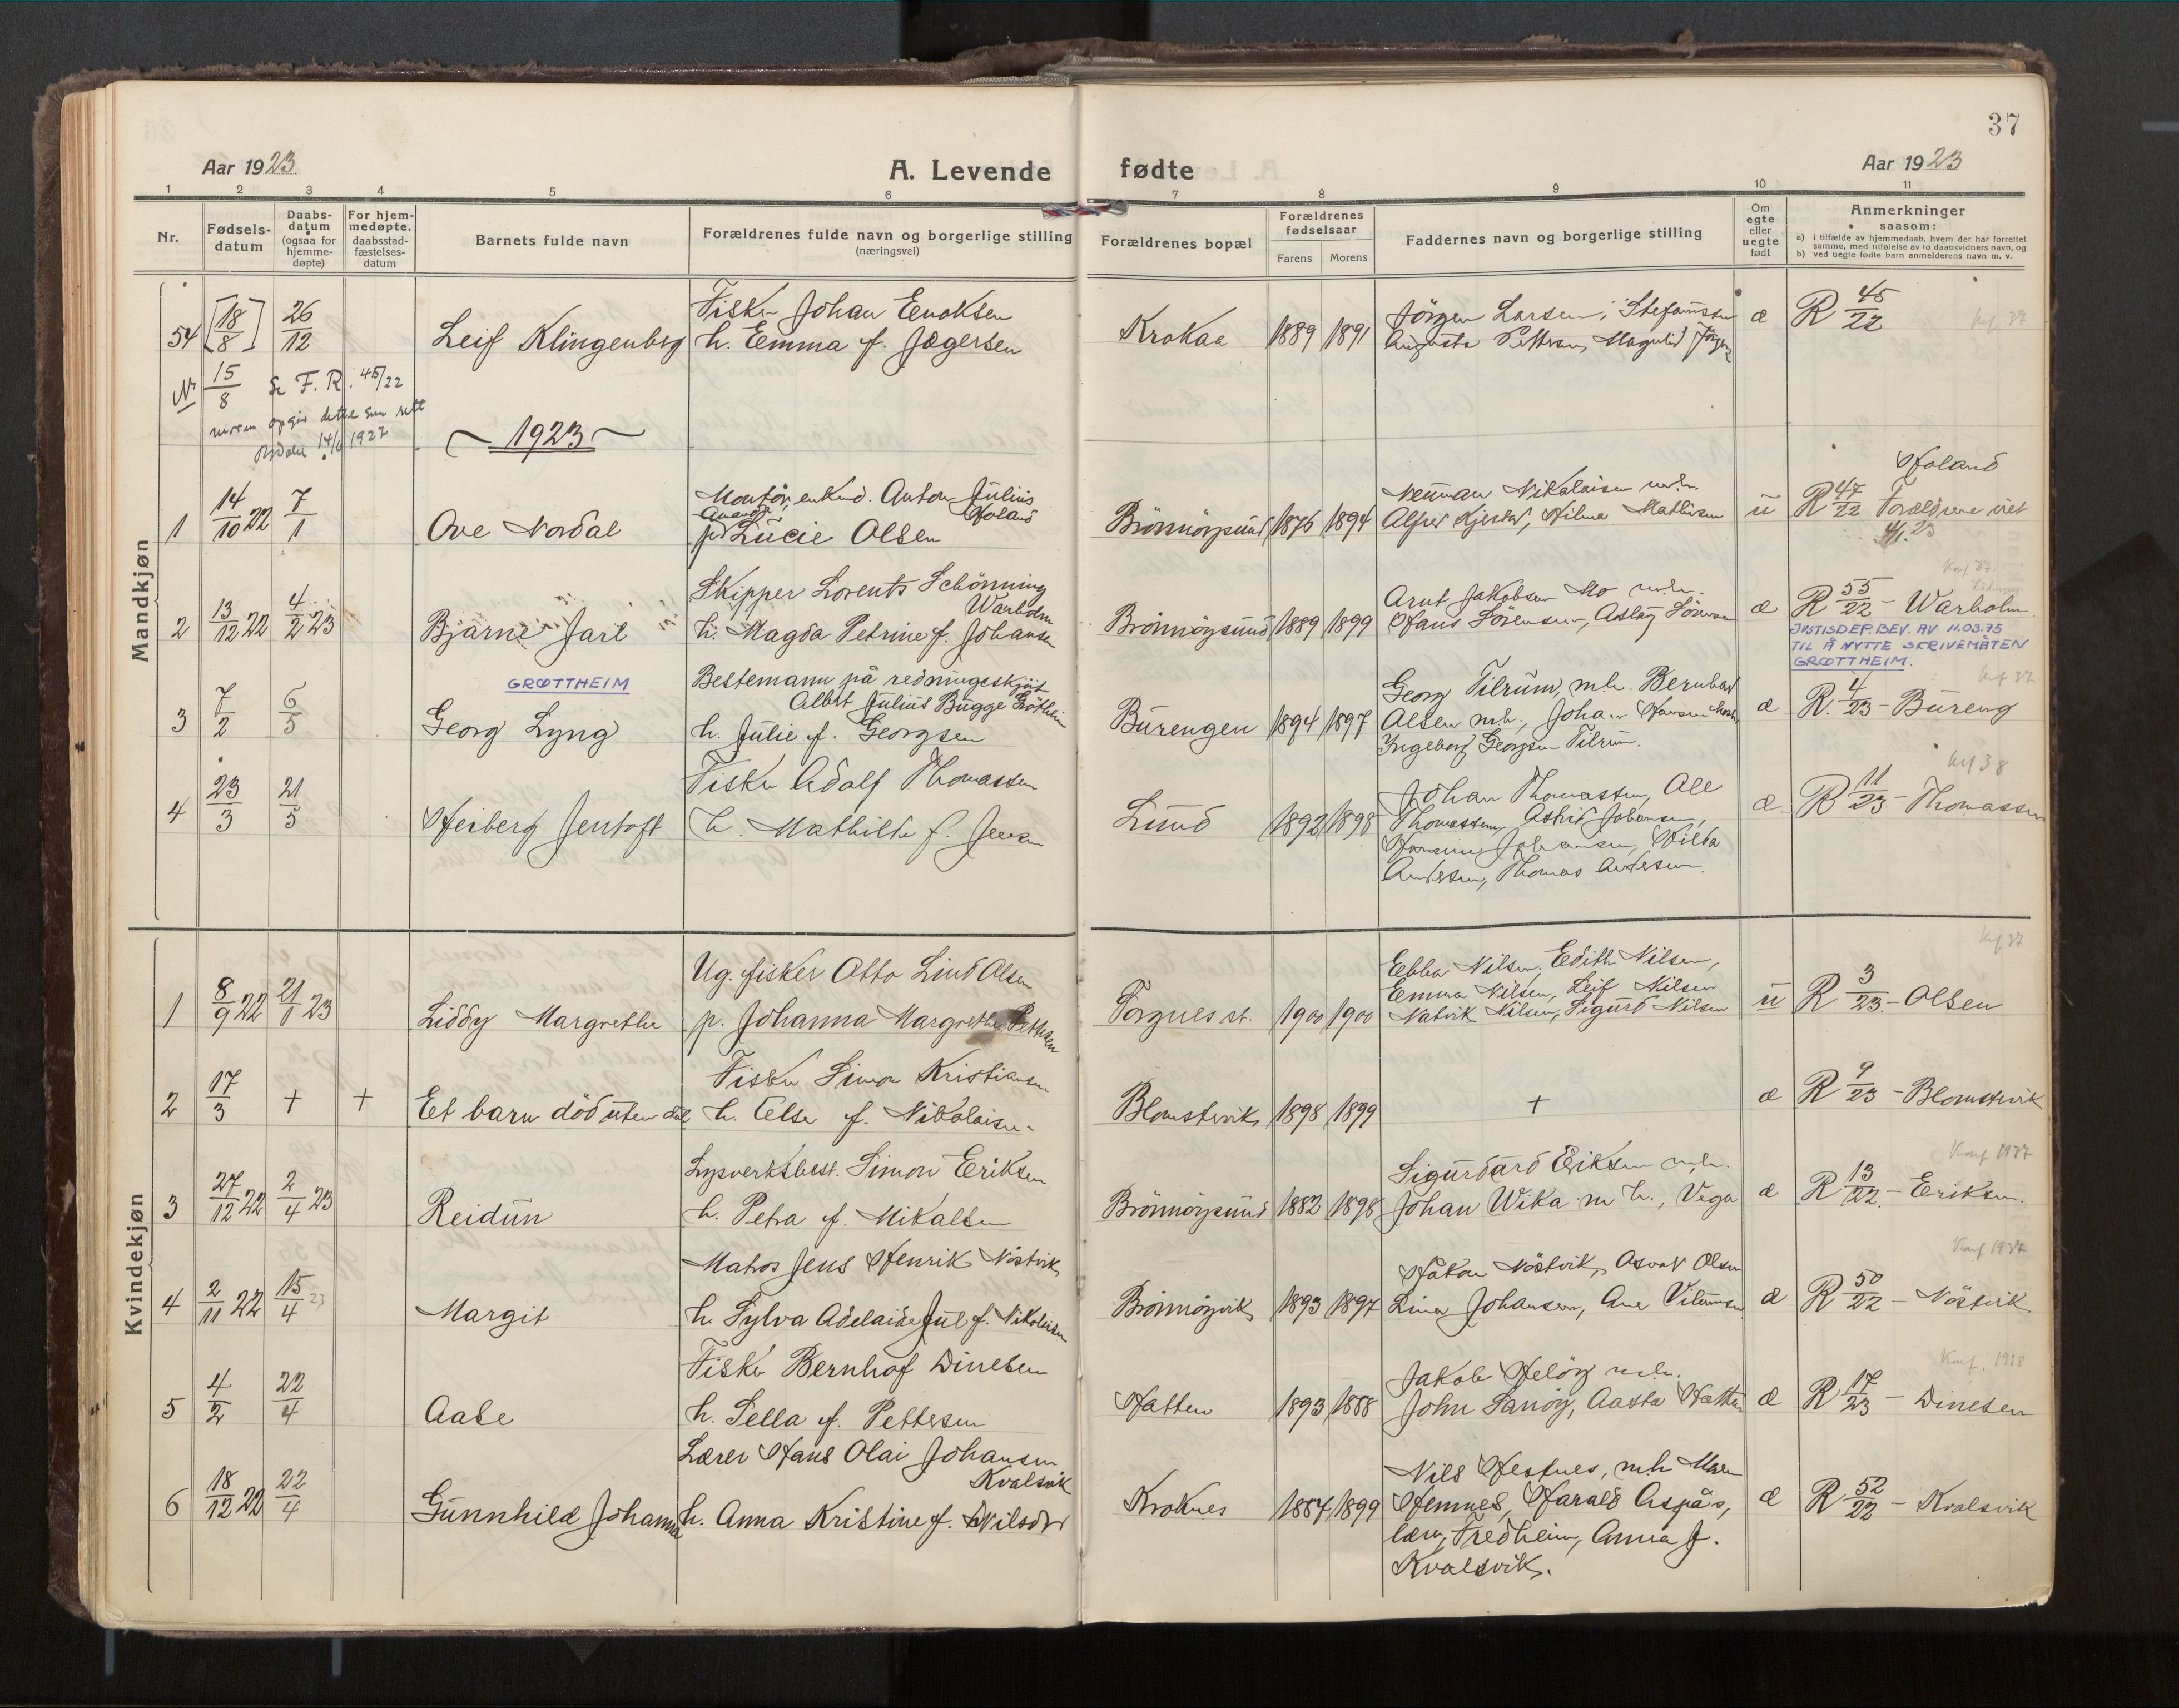 37
Aar 1923
A. Levende fødte
Aar 1923
1 2 3 4 5 6 7 8 9 10 11
Nr.
Fødsels-
datum
Daabs-
datum
(ogsaa for
hjemme-
døpte)
For hjem-
medøpte,
daabsstad-
fæstelses-
datum
Barnets fulde navn
Forældrenes fulde navn og borgerlige stilling
(næringsvei)
Forældrenes bopæl
Forældrenes
fødselsaar
Farens Morens
Faddernes navn og borgerlige stilling
Om
egte
eller
uegte
født
Anmerkninger
saasom:
a) i tilfælde av hjemmedaab, hvem der har forrettet
samme, med tilføielse av to daabsvidners navn, og
b) ved uegte fødte barn anmelderens navn m. v.
Mandkjøn
54 [18/8] 26/12 Leif Klingenberg
Fisker Johan Enoksen
h. Emma f. Jægersen
Krokaa 1889 1891
Jörgen Larsen, Stefanussen
Augusta Pettersen, Magnhild
æ R 45/22
15/8 Se F. R. 45/22
moren opgir dette som rett
14/6 1927
1923
1 14/10 22 7/1 Ove Nordal
Montör, enkmd. Anton Julius
Amanda Holand
p. Lucie Olsen
Brönnöysund 1876 1894
Neuman Nikolaisen m.h.
Alfred Kjestad, Hilma Mathisen
u
Holand
R 47/22 Forældrene viet
4/1.23
2 13/12 22 4/2 23 Bjarne Jarl
Skipper Lorents Schönning
Warholm
h. Magda Petrine f. Johansen
Brönnöysund 1889 1899
Arnt Jakobsen Mo m.h.
Hans Sörensen, Aslaug Sörensen
æ
Konf 37.
R 55/22 - Warholm
JUSTISDEP. BEV. AV 11.03.75
TIL Å NYTTE SKRIVEMÅTEN
GRØTTHEIM.
GRØTTHEIM
3 7/2 6/5 Georg Lyng
Bestemann på redningsskjöit
Albert Julius Bugge Grötheim
h. Julie f. Georgsen
Burengen 1894 1897
Georg Tilrum, m.h. Bernhard
Olsen m.h., Johan Hansen
Ingeborg Georgsen Tilrum.
æ
Knf 37
R. 4/23 - Bureng
4 23/3 21/5 Heiberg Jentoft
Fisker Adolf Thomassen
h. Mathilde f. Jensen
Lund 1892 1898
Johan Thomassen, Ole
Thomassen, Astrid Johansen,
Hansine Johansen, Hilda
Andersen, Thomas Andersen.
æ
Knf 38
R 11/23 - Thomassen
Kvindekjøn
1 8/9 22 21/1 23 Liddy Margrethe
Ug. fisker Otto Lind Olsen
p. Johanna Margrethe Pettersen
Torgnes st. 1900 1900
Ebba Nilsen, Edith Nilsen,
Emma Nilsen, Leif Nilsen
Natvik Nilsen, Sigurd Nilsen
u
Knf 37
R 3/23. - Olsen
2 17/3 + + Et barn död uten dåb
Fisker Simon Kristiansen
h. Else f. Nikolaisen.
Blomstervik 1898 1899
+
æ R 9/23 - Blomstervik
3 27/12 22 2/4 23 Reidun
Lysverksbest. Simon Eriksen
h. Petra f. Mikalsen
Brönnöysund 1882 1898
Sigurd Eriksen m.h.
Johan Wika m h., Vega
æ
Konf 1937
R 13/22. - Eriksen.
4 2/11 22 15/4 23 Margit
Matros Jens Henrik Nöstvik
h. Sylva Adelaide Jul f. Nikolaisen
Brönnöyvik 1893 1897
Håkon Nöstvik, Osvald Olsen
Lina Johansen, Ane Vilumsen
æ
Konf 1937
R 50/22 - Nöstvik
5 4/2 22/4 Aase
Fisker Bernhof Dinesen
h. Sella f. Pettersen
Hatten 1893 1888
Jakob Helöy m.h.
John Sanöy, Aasta Hatten
æ
Konf. 1938
R 17/23 - Dinesen
6 18/12 22 22/4 Gunnhild Johanna
Lærer Hans Olai Johansen
Kvalsvik
h. Anna Kristine f. Nilsen
Kroknes 1884 1899
Nils Hestnes, m.h Maren
Hemnes, Harald Aspås,
lærer, Fredheim, Anna J.
Kvalsvik.
æ R 52/22 - Kvalsvik